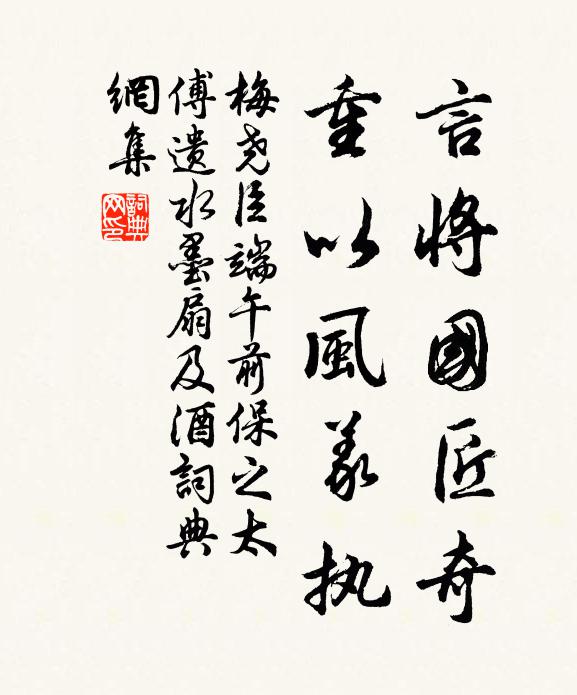 言將國匠奇
重以風義执
梅尧臣端午前保之太
傅遺水墨扇及酒詞典
網集
詞典网印